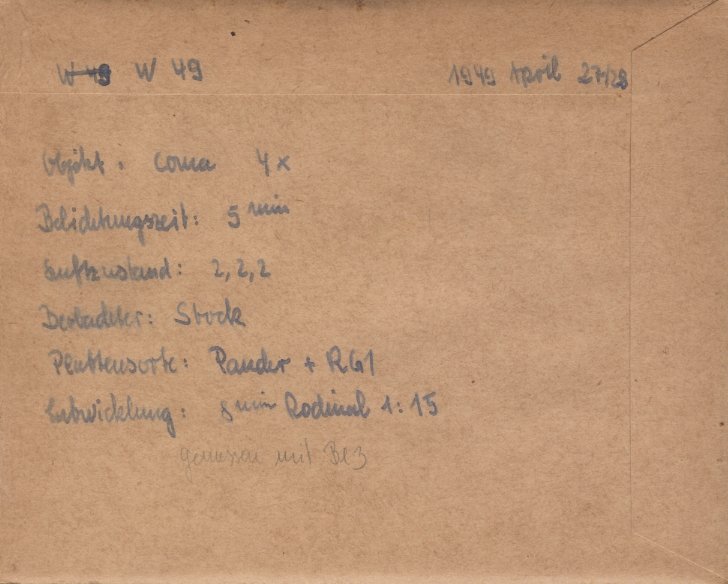 W 49 W 49 1949 April 27/28
Objekt: Coma 4x
Belichtungszeit: 5 min
Luftzustand: 2, 2, 2
Beobachter: Stock
Plattensorte: Pander + RG1
Entwicklung: 8 min Rodinal 1:15
gemessen mit